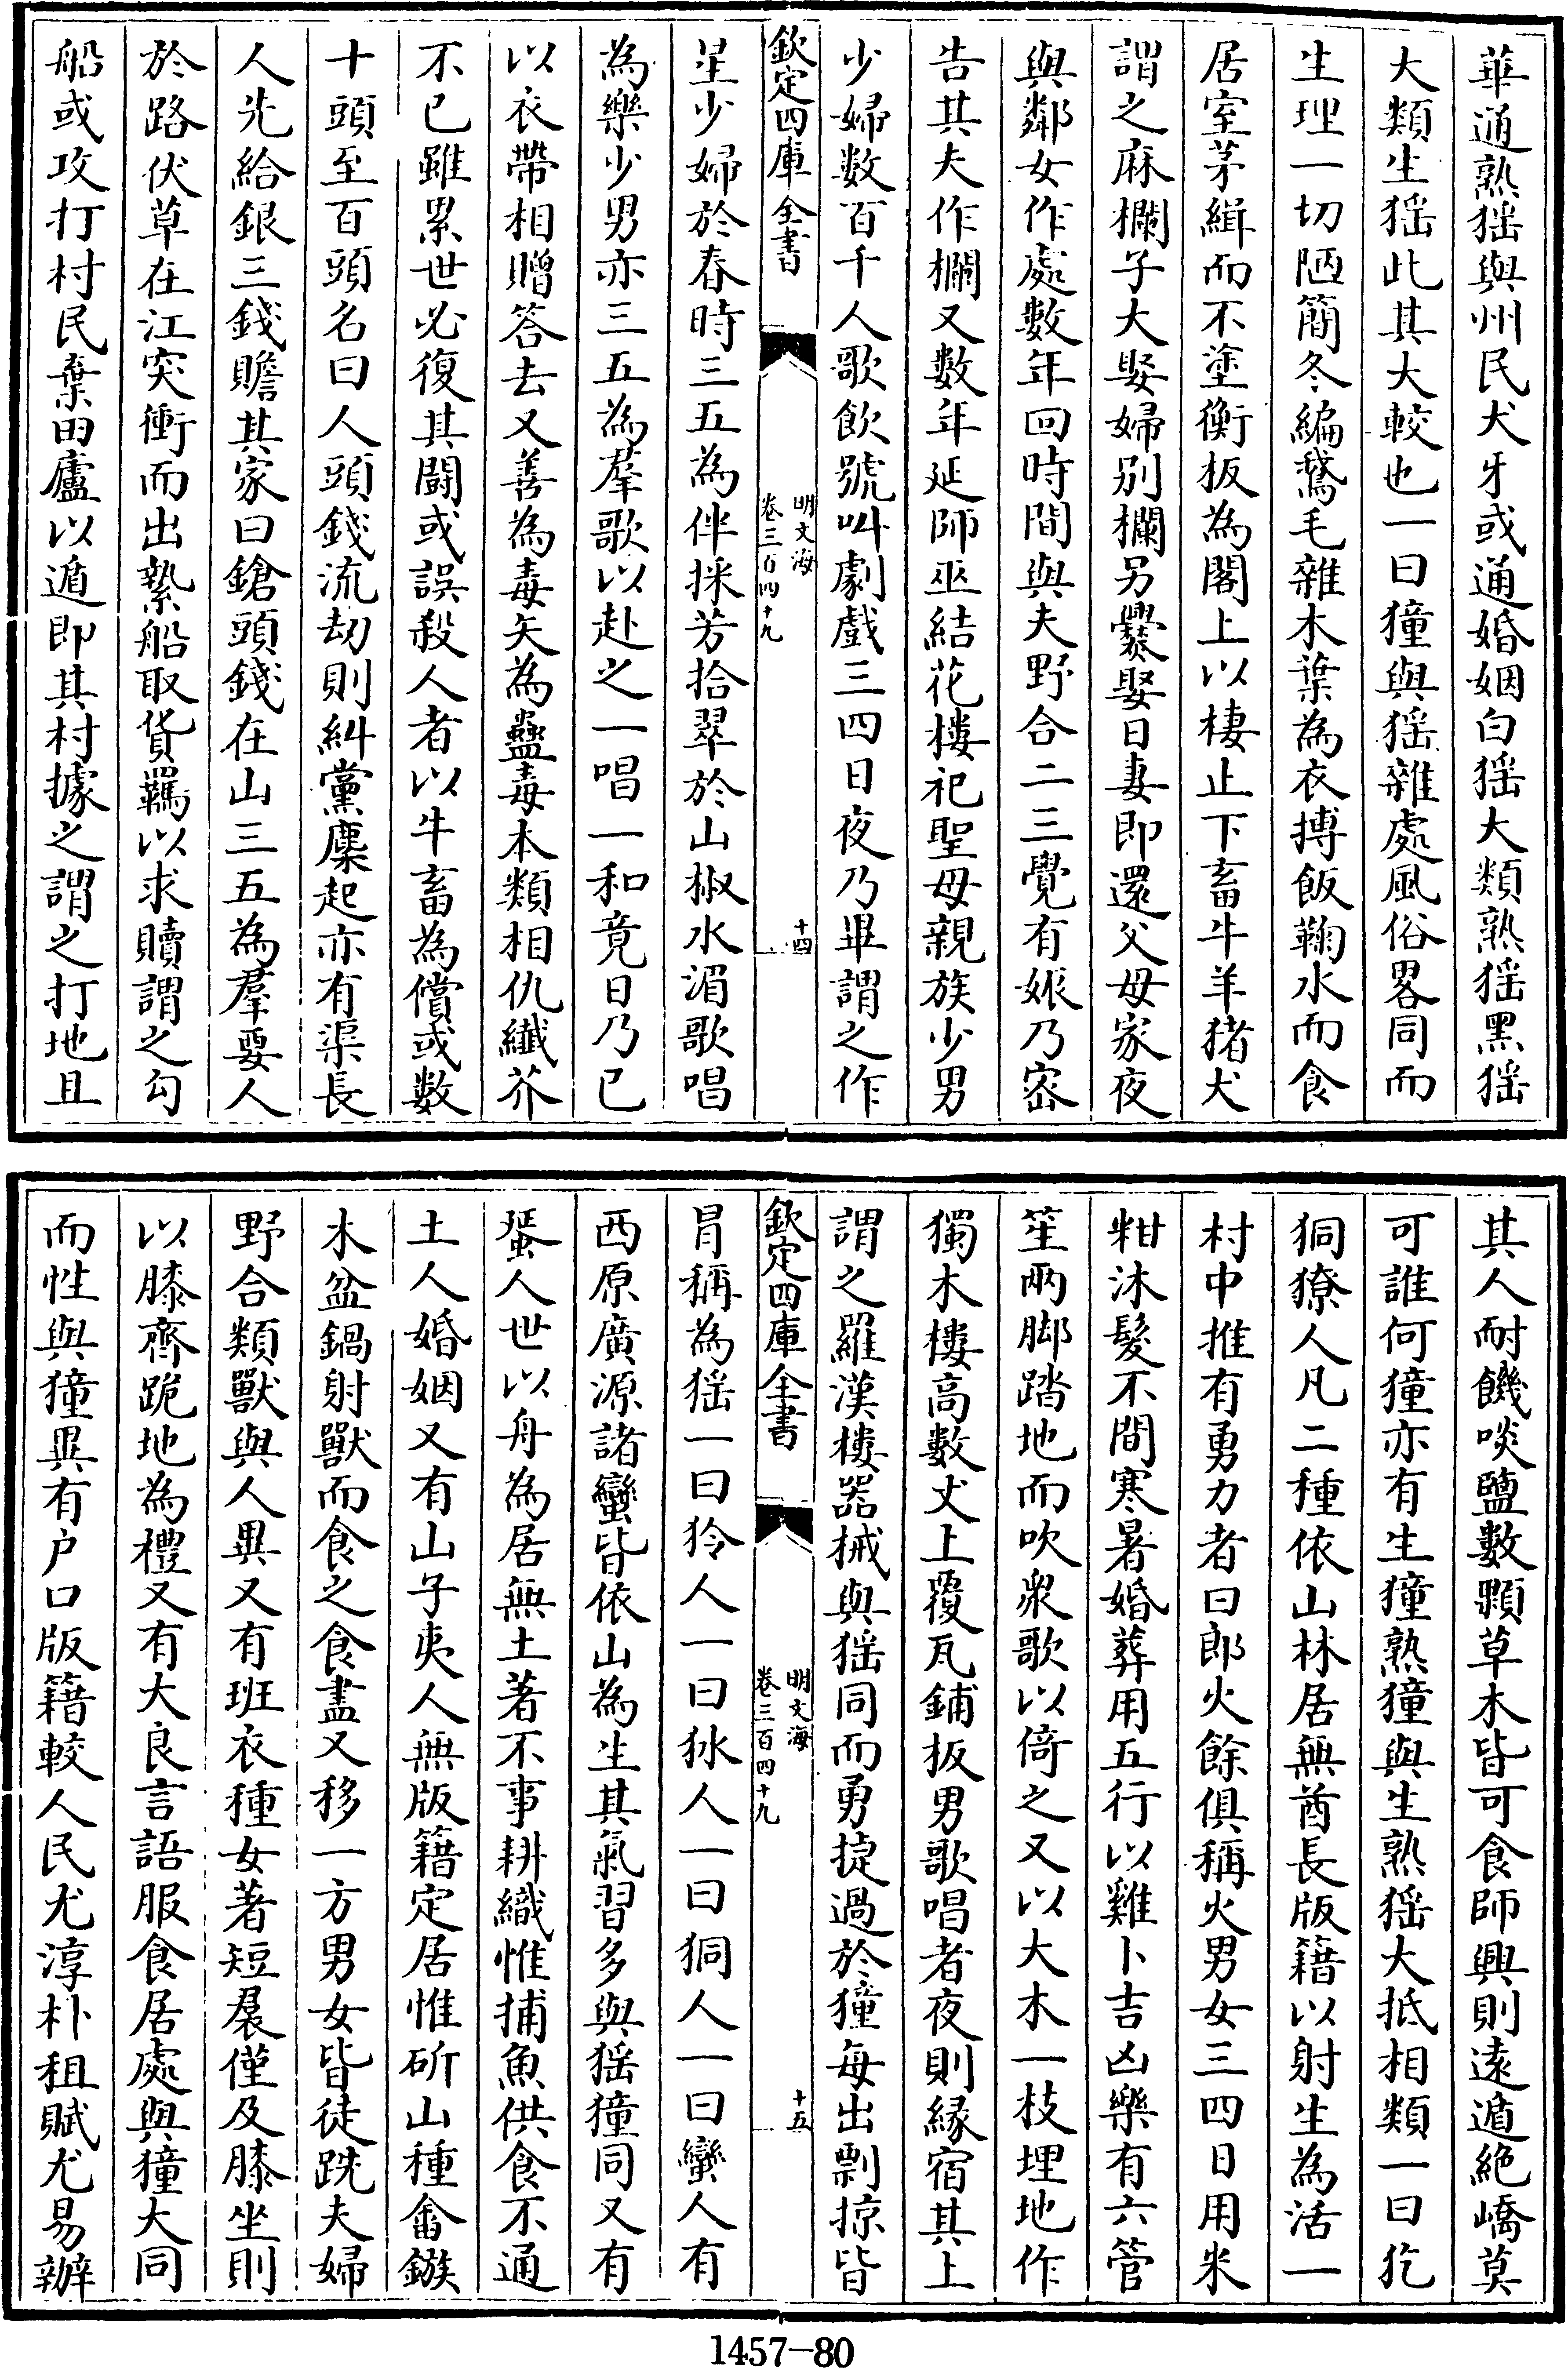 華通熟猺與州民犬牙或通婚姻白猺大類熟猺黑猺
大類生猺此其大較也一曰獞與猺雜處風俗畧同而
生理一切陋簡冬編鵞毛雜木葉為衣搏飯鞠水而食
居室茅緝而不塗衡板為閣上以棲止下畜牛羊猪犬
謂之麻欄子大娶婦别欄另爨娶日妻即還父母家夜
與鄰女作處數年回時間與夫野合二三覺有娠乃宻
告其夫作欄又數年延師巫結花樓祀聖母親族少男
少婦數百千人歌飲號叫劇戲三四日夜乃畢謂之作
欽定四庫全書
明文海
卷三百四十九
十四
星少婦於春時三五為伴採芳拾翠於山椒水湄歌唱
為樂少男亦三五為羣歌以赴之一唱一和竟日乃已
以衣帶相贈答去又善為毒矢為蠱毒本類相仇纖芥
不已雖累世必復其鬬或誤殺人者以牛畜為償或數
十頭至百頭名曰人頭錢流刼則糾黨麇起亦有渠長
人先給銀三錢贍其家曰鎗頭錢在山三五為羣要人
於路伏草在江突衝而出縶船取貨羈以求贖謂之勾
船或攻打村民棄田廬以遁即其村據之謂之打地且
其人耐饑啖鹽數顆草木皆可食師興則逺遁絶嶠莫
可誰何獞亦有生獞熟獞與生熟猺大抵相類一曰犵
狪獠人凡二種依山林居無酋長版籍以射生為活一
村中推有勇力者曰郎火餘俱稱火男女三四日用米
粓沐髮不間寒暑婚葬用五行以雞卜吉凶樂有六管
笙兩脚踏地而吹衆歌以倚之又以大木一枝埋地作
獨木樓高數丈上覆瓦鋪板男歌唱者夜則緣宿其上
謂之羅漢樓器械與猺同而勇捷過於獞每出剽掠皆
欽定四庫全書
明文海
卷三百四十九
十五
冐稱為猺一曰狑人一曰㹫人一曰狪人一曰蠻人有
西原廣源諸蠻皆依山為生其氣習多與猺獞同又有
蜑人世以舟為居無土著不事耕織惟捕魚供食不通
土人婚姻又有山子夷人無版籍定居惟斫山種畬鏃
木盆鍋射獸而食之食盡又移一方男女皆徒跣夫婦
野合類獸與人異又有班衣種女著短裠僅及膝坐則
以膝齊跪地為禮又有大良言語服食居處與獞大同
而性與獞異有户口版籍較人民尤淳朴租賦尤易辦
1457-80